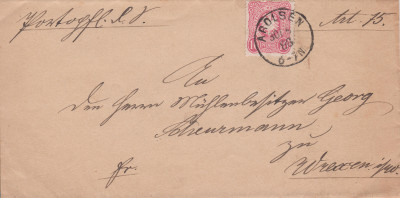 Portopfl. D. S.
Art. 15.
AROLSEN
6-7N
An
den Herrn Mühlenbesitzer Georg
Scheurmann
zu
Wrexen i/W.
fr.